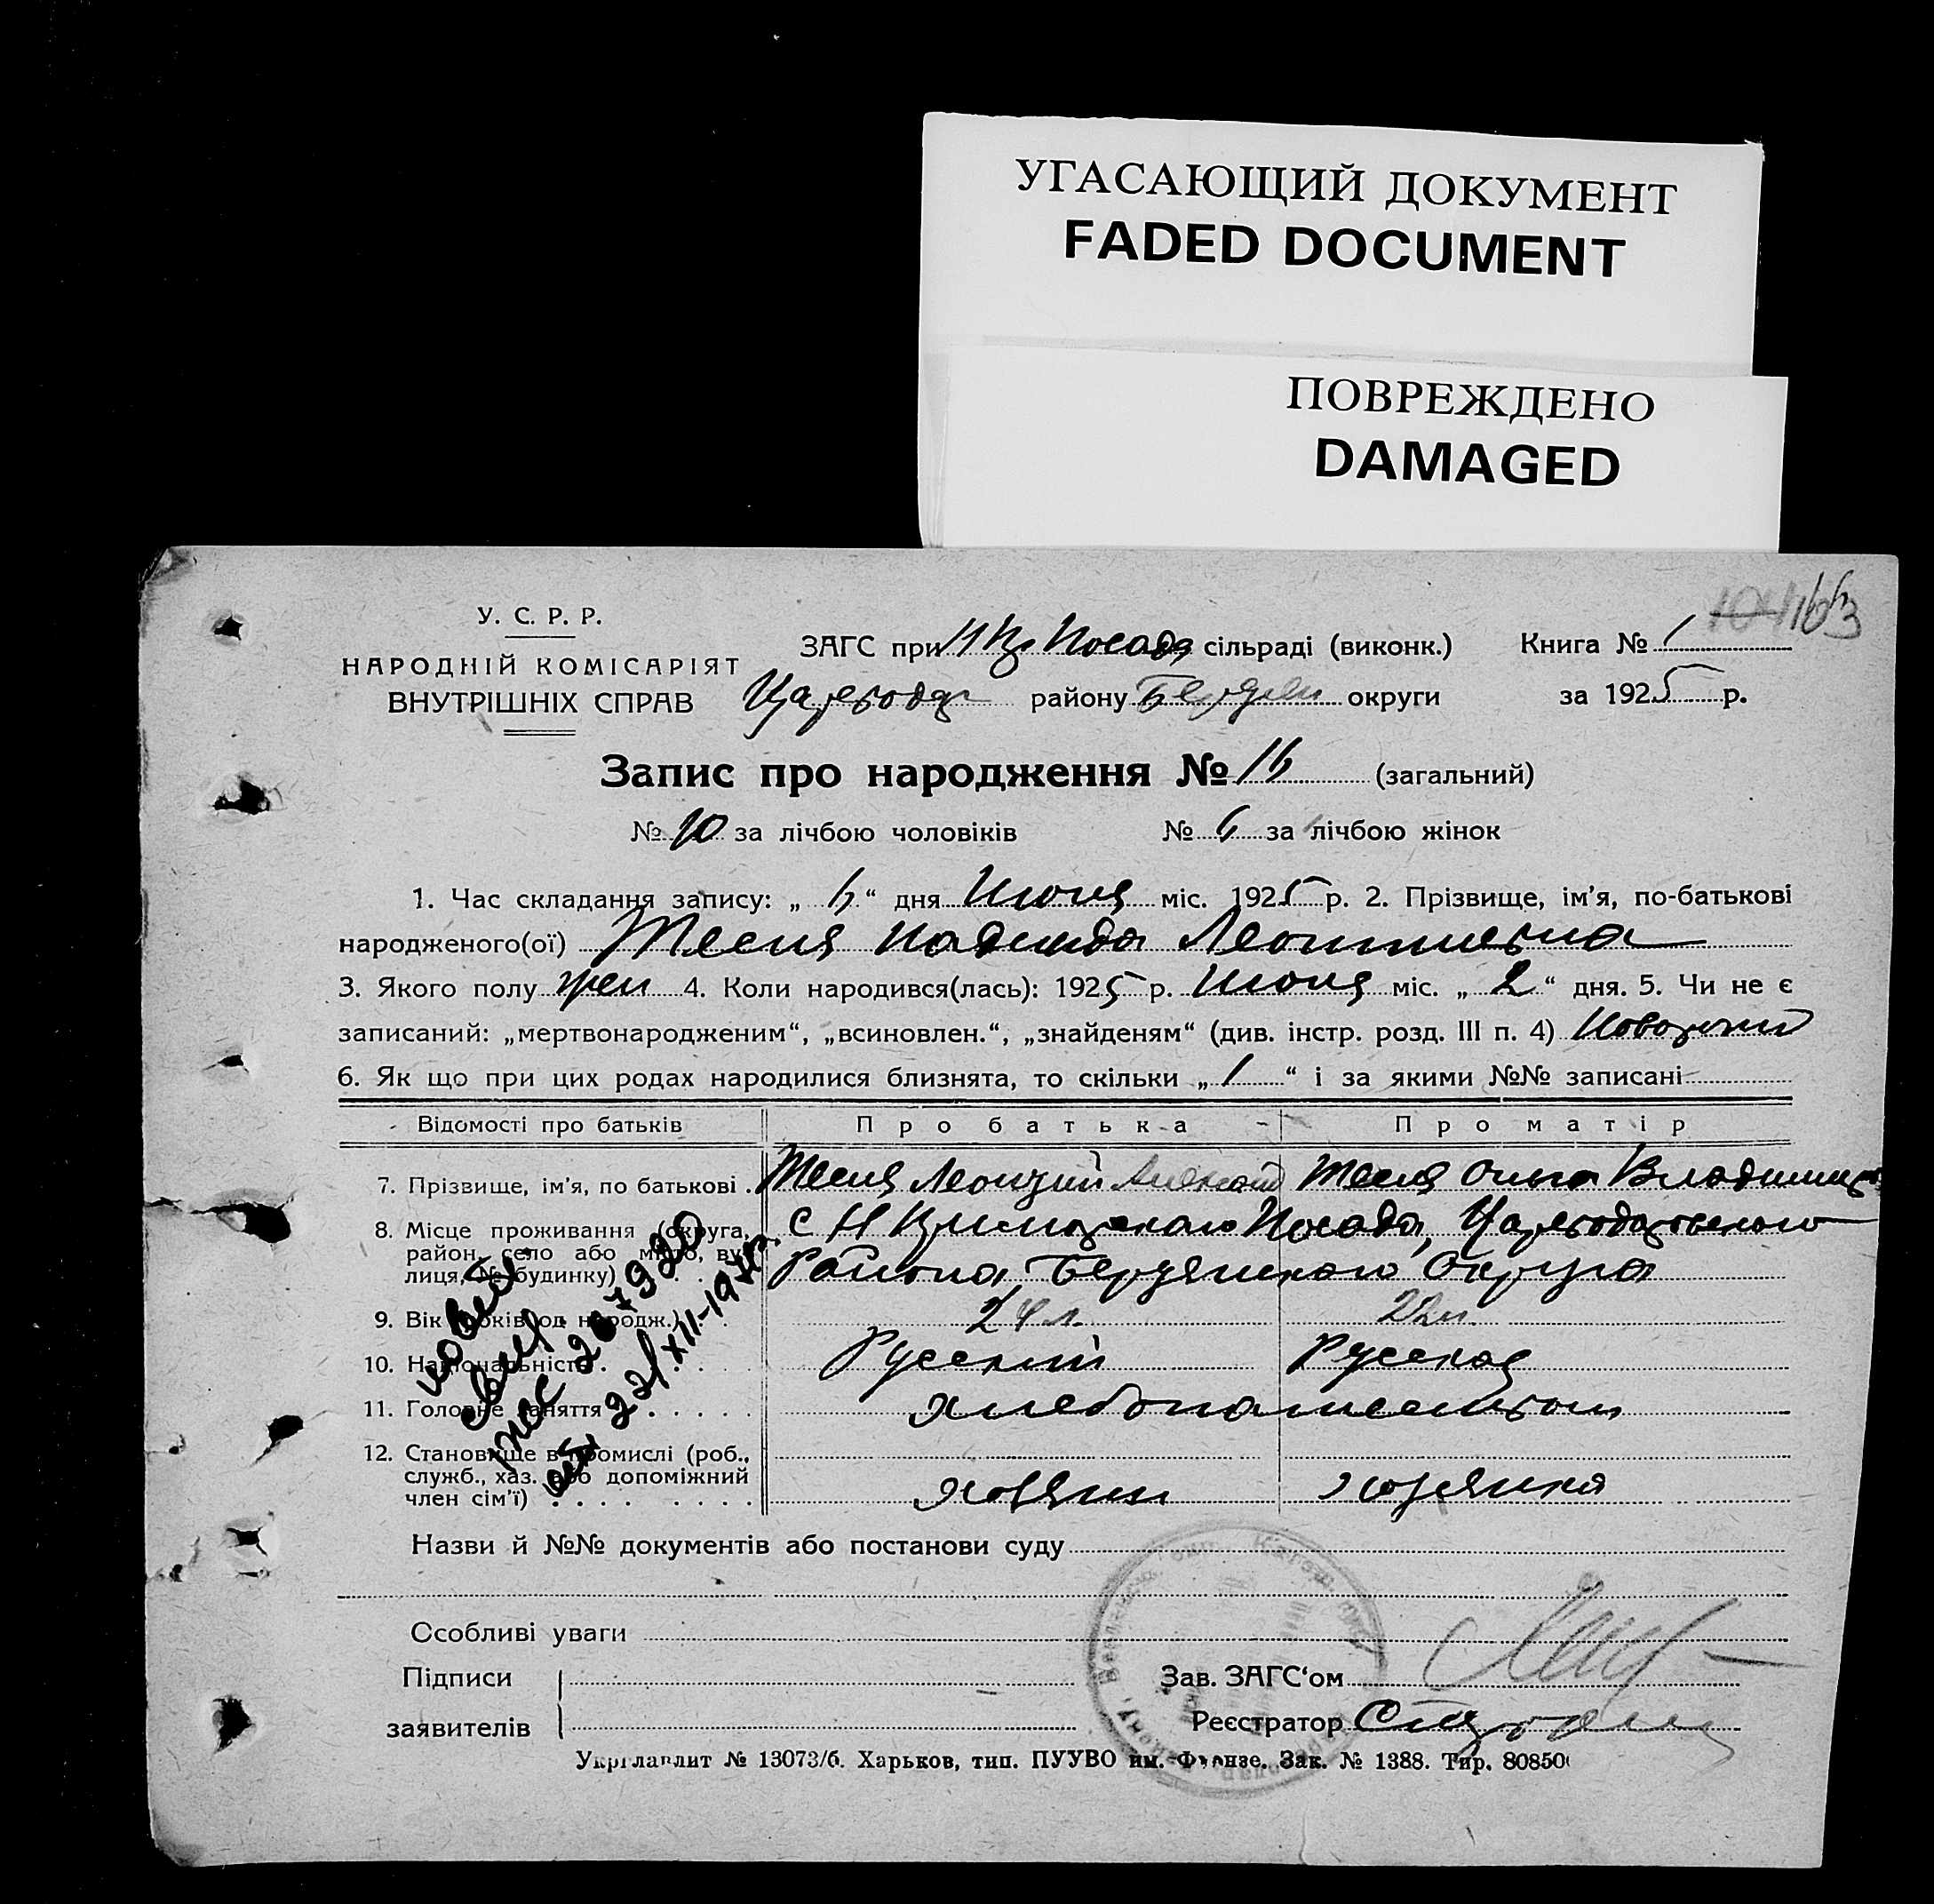 УГАСАЮЩИЙ ДОКУМЕНТ
FADED DOCUMENT
ПОВРЕЖДЕНО
DAMAGED
У. С. Р. Р.
НАРОДНІЙ КОМІСАРІЯТ
ВНУТРІШНІХ СПРАВ
ЗАГС при Посада сільраді (виконк.) Книга № 1
району Бердян округи за 1925 р.
Запис про народження № 16 (загальний)
№ 10 за лічбою чоловіків № 6 за лічбою жінок
1. Час складання запису: „ 6 “ дня Июня міс. 1925 р. 2. Прізвище, ім’я, по-батькові
народженого(ої) Тесля Надежда Леонтиевна
3. Якого полу жен 4. Коли народився(лась): 1925 р. Июня міс. „ 2 “ дня. 5. Чи не є
записаний: „мертвонародженим“, „всиновлен.“, „знайденям“ (див. інстр. розд. III п. 4)
6. Як що при цих родах народилися близнята, то скільки „ 1 “ і за якими №№ записані
Відомості про батьків Про батька Про матір
7. Прізвище, ім’я, по батькові . Тесля Леонтий Тесля Ольга Владимир
8. Місце проживання (округа, район, село або місто, вулиця, № будинку) с Н Посада,
Района, Бердянского Округа
9. Вік (років од народж.) . 24 л. 22 л.
10. Національність . Русский Русская
11. Головне заняття . . . . .
12. Становище в промислі (роб., служб., хаз. або допоміжний член сім’ї) . . . . хозяин хозяйка
Назви й №№ документів або постанови суду
Особливі уваги
Підписи
заявителів
Зав. ЗАГС‘ом
Реєстратор
Укрглавлит № 13073/б. Харьков, тип. ПУУВО им. Фрунзе. Зак. № 1388. Тир. 80850